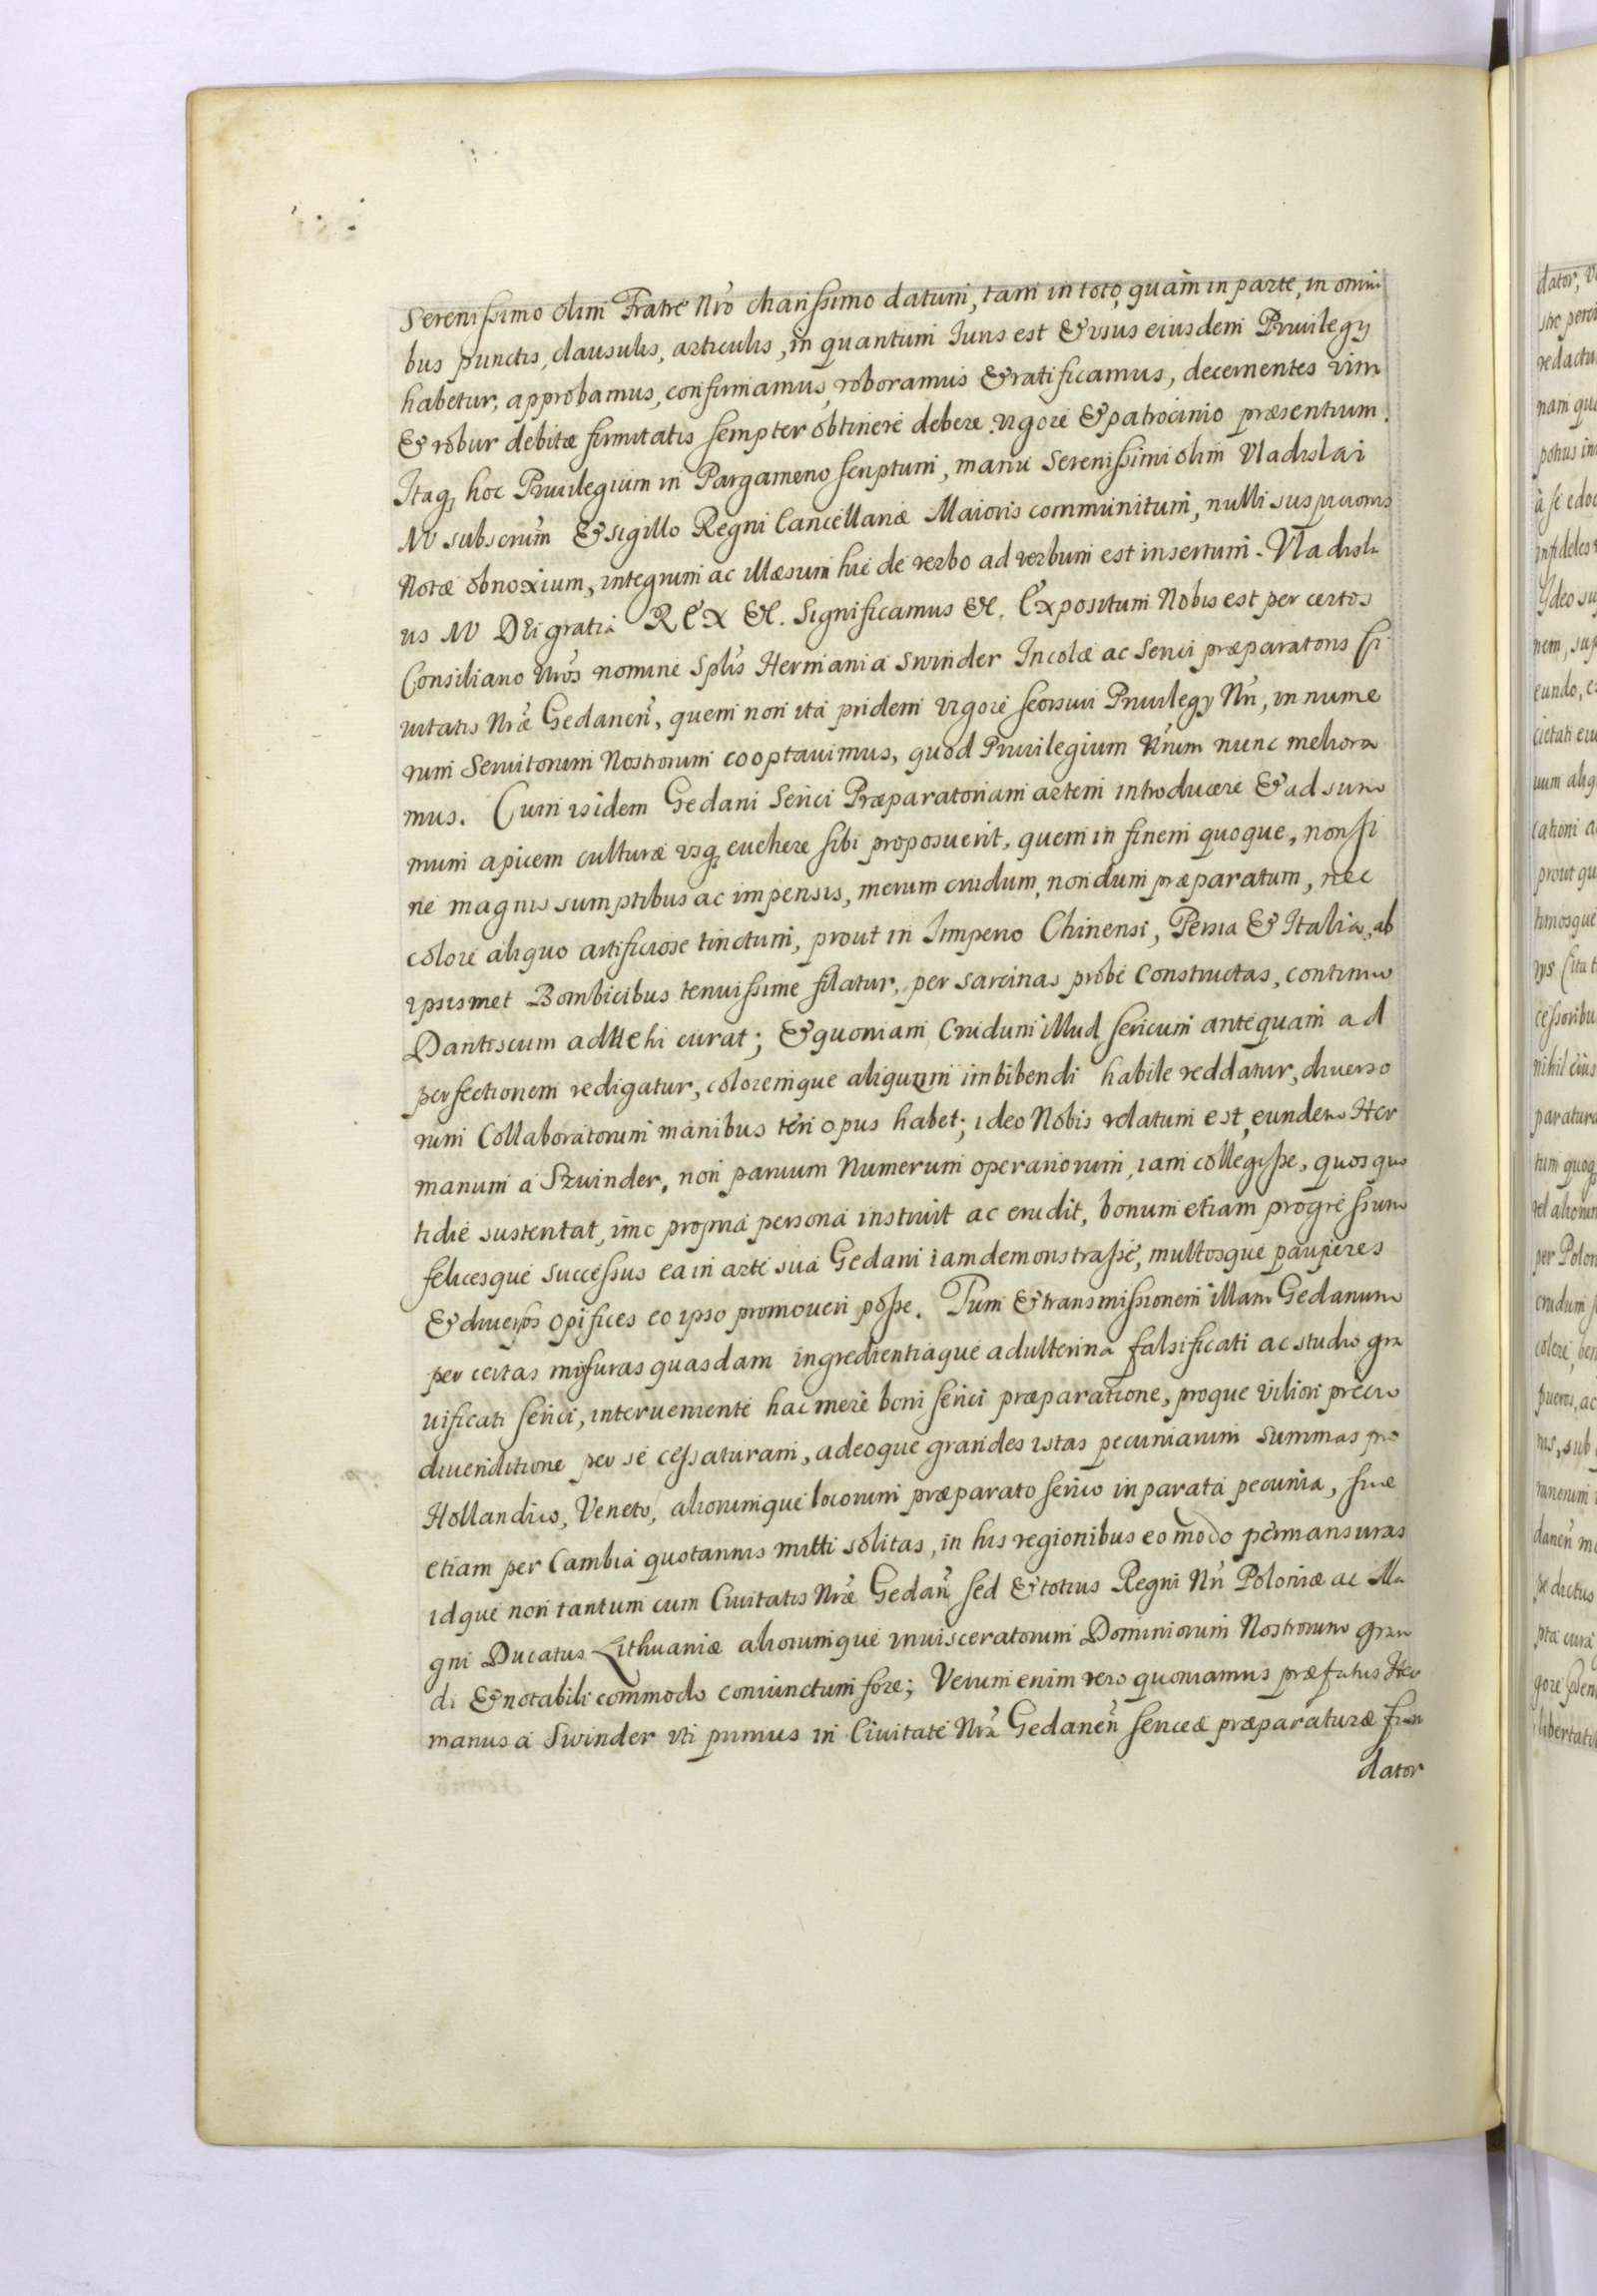 Serenissimo olim Fratre Nro charissimo datum, tam in toto, quàm in parte, in omni
bus punctis, clausulis, articulis, in quantum Iuris est & usus eiusdem Priuilegy
habetur, approbamus, confirmamus, roboramus & ratificamus, decernentes vim
& robur debitæ firmitatis sempter obtinere debere vigore & patrocinio præsentium.
Itaq hoc Priuilegium in Pargameno scriptum, manu Serenissimi olim Vladislai
IV subscrum & sigillo Regni Cancellariæ Maioris communitum, nulli suspicionis
Notæ obnoxium, integrum ac illæsum hic de verbo ad verbum est insertum. Vladisla
us IV DEi gratiâ REX &c. Significamus &c. Expositum Nobis est per certos
Consiliario Nros nomine Splis Hermani à Swinder Incolæ ac Serici præparatoris Ci
uitatis Nræ Gedanen, quem non ita pridem vigore seorsiui Priuilegy Nri, in nume
rum Seruitorum Nostrorum cooptauimus, quod Priuilegium Nrum nunc meliora
mus. Cum isidem Gedani Serici Præparatoriam artem introducere & ad sum
mum apicem culturæ usq euehere sibi proposuerit, quem in finem quoque, non si
ne magnis sumptibus ac impensis, merum crudum, nondum præparatum, nec
colore aliquo artificiose tinctum, prout in Imperio Chinensi, Persia & Italia, ab
ipsismet Bombicibus tenuissime filatur, per sarcinas probè Constructas, continuo
Dantiscum aduehi curat; & quoniam Crudum illud sericum antequam ad
perfectionem redigatur, coloremque aliquem imbibendi habile reddatur, diuerso
rum Collaboratorum manibus teri opus habet; ideo Nobis relatum est, eundem Her
manum à Szwinder, non paruum Numerum operariorum iam collegisse, quos quo
tidie sustentat, imo propriâ personâ instruit ac erudit, bonum etiam progressum
felicesque successus ea in arte suâ Gedani iam demonstrasse, multosque pauperes
& diuersos opifices eo ipso promoueri posse. Tum & transmissionem illam Gedanum
per certas misturas quasdam ingredientiaque adulterina falsificati ac studio gra
uificati serici, interueniente hac merè boni serici præparatione, proque viliori precio
diuenditione per se cessaturam, adeoque grandes istas pecuniarum summas pro
Hollandico, Veneto, aliorumque locorum præparato serico in parata pecunia, siue
etiam per Cambia quotannis mitti solitas, in his regionibus eo modo permansuras
idque non tantum cum Ciuitatis Nræ Gedan sed & totius Regni Nri Poloniæ ac Ma
gni Ducatus Lithuaniæ aliorumque inuisceratorum Dominiorum Nostrorum gran
di & notabili commodo coniunctum fore; Verum enim vero quoniamus præfatus Her
manus à Swinder uti primus in Ciuitate Nra Gedanen sericeæ præparaturæ fun
dator